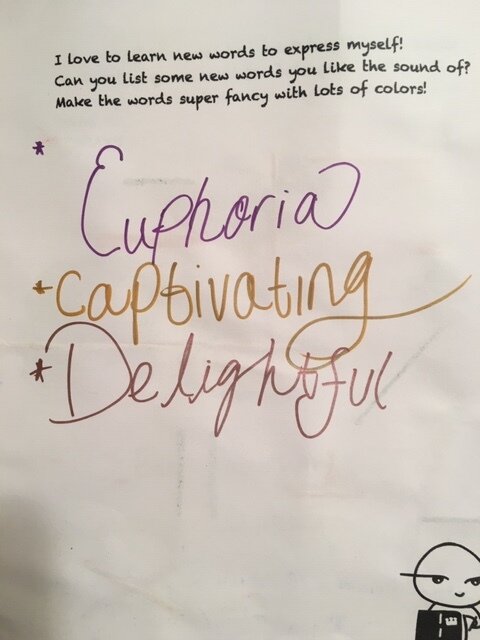 I love to learn new words to express myself!
Can you list some new words you like the sound of?
Make the words super fancy with lots of colors!
* Euphoria
* Captivating
* Delightful